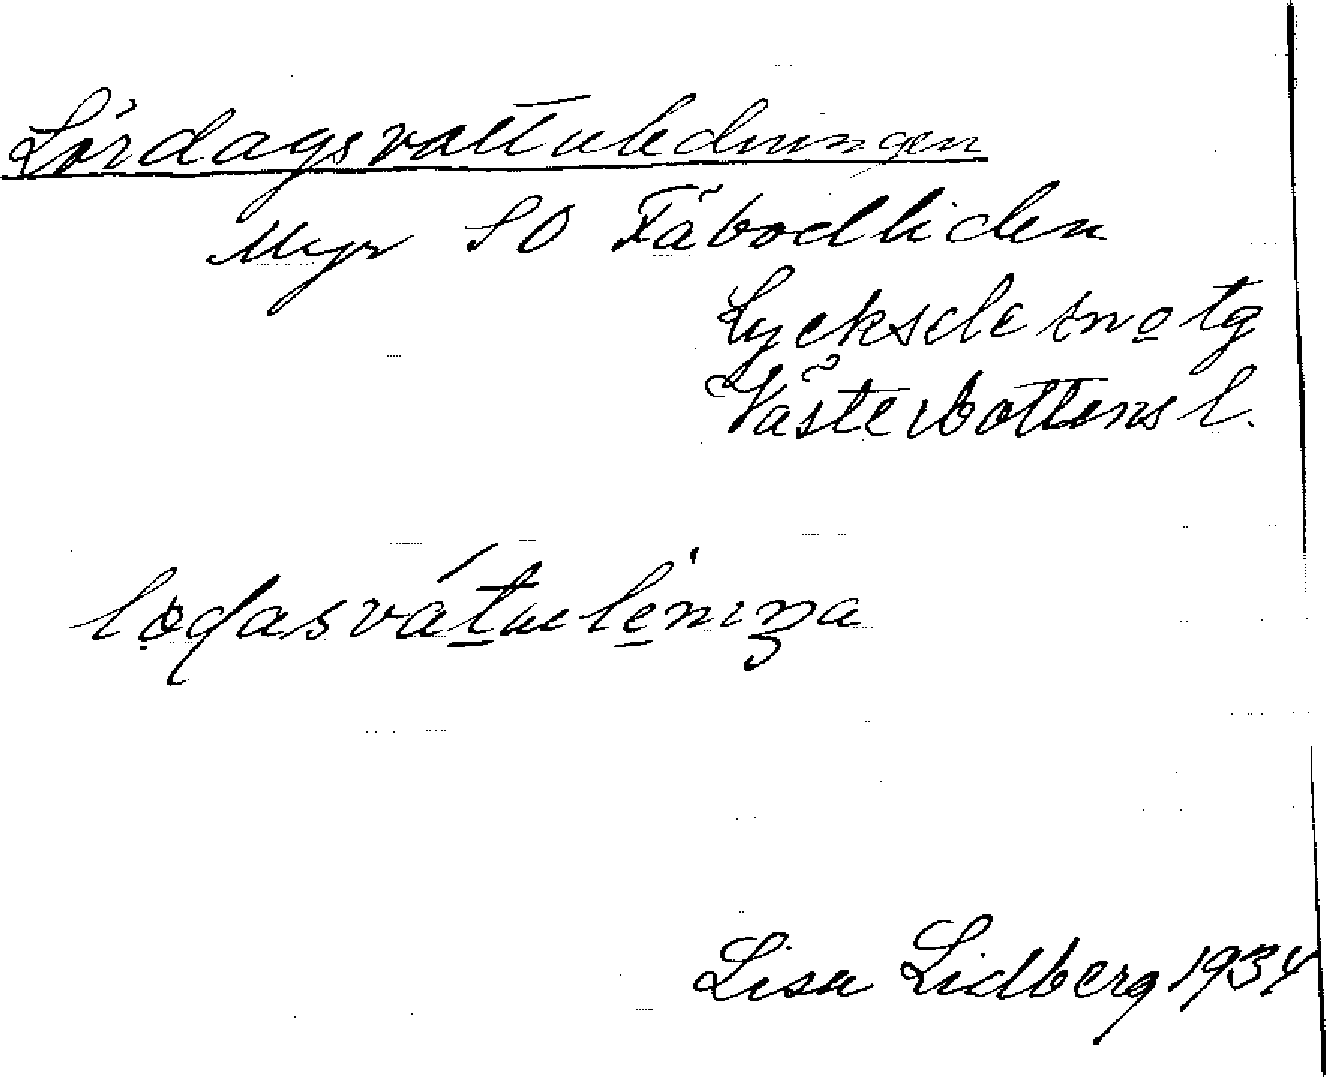 Lördagsvattuledningen
Myr SO Fäbodliden
Lycksele sn o tg
Västerbottens l.
Lisa Lidberg 1934